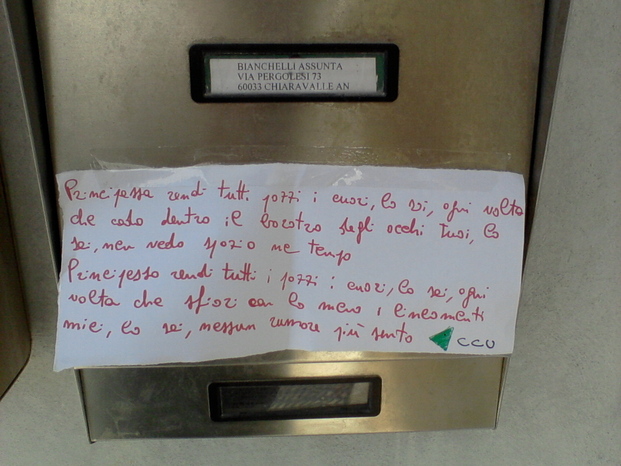 BIANCHELLI ASSUNTA
VIA PERGOLESI 73
60033 CHIARAVALLE AN
Principessa rendi tutti pazzi i cuori, lo sai, ogni volta
che cado dentro il baratro degli occhi tuoi, lo
sai, non vedo spazio ne tempo
Principessa rendi tutti i pazzi i cuori, lo sai, ogni
volta che sfiori con la mano i lineamenti
miei, lo sai, nessun rumore più sento
CCU